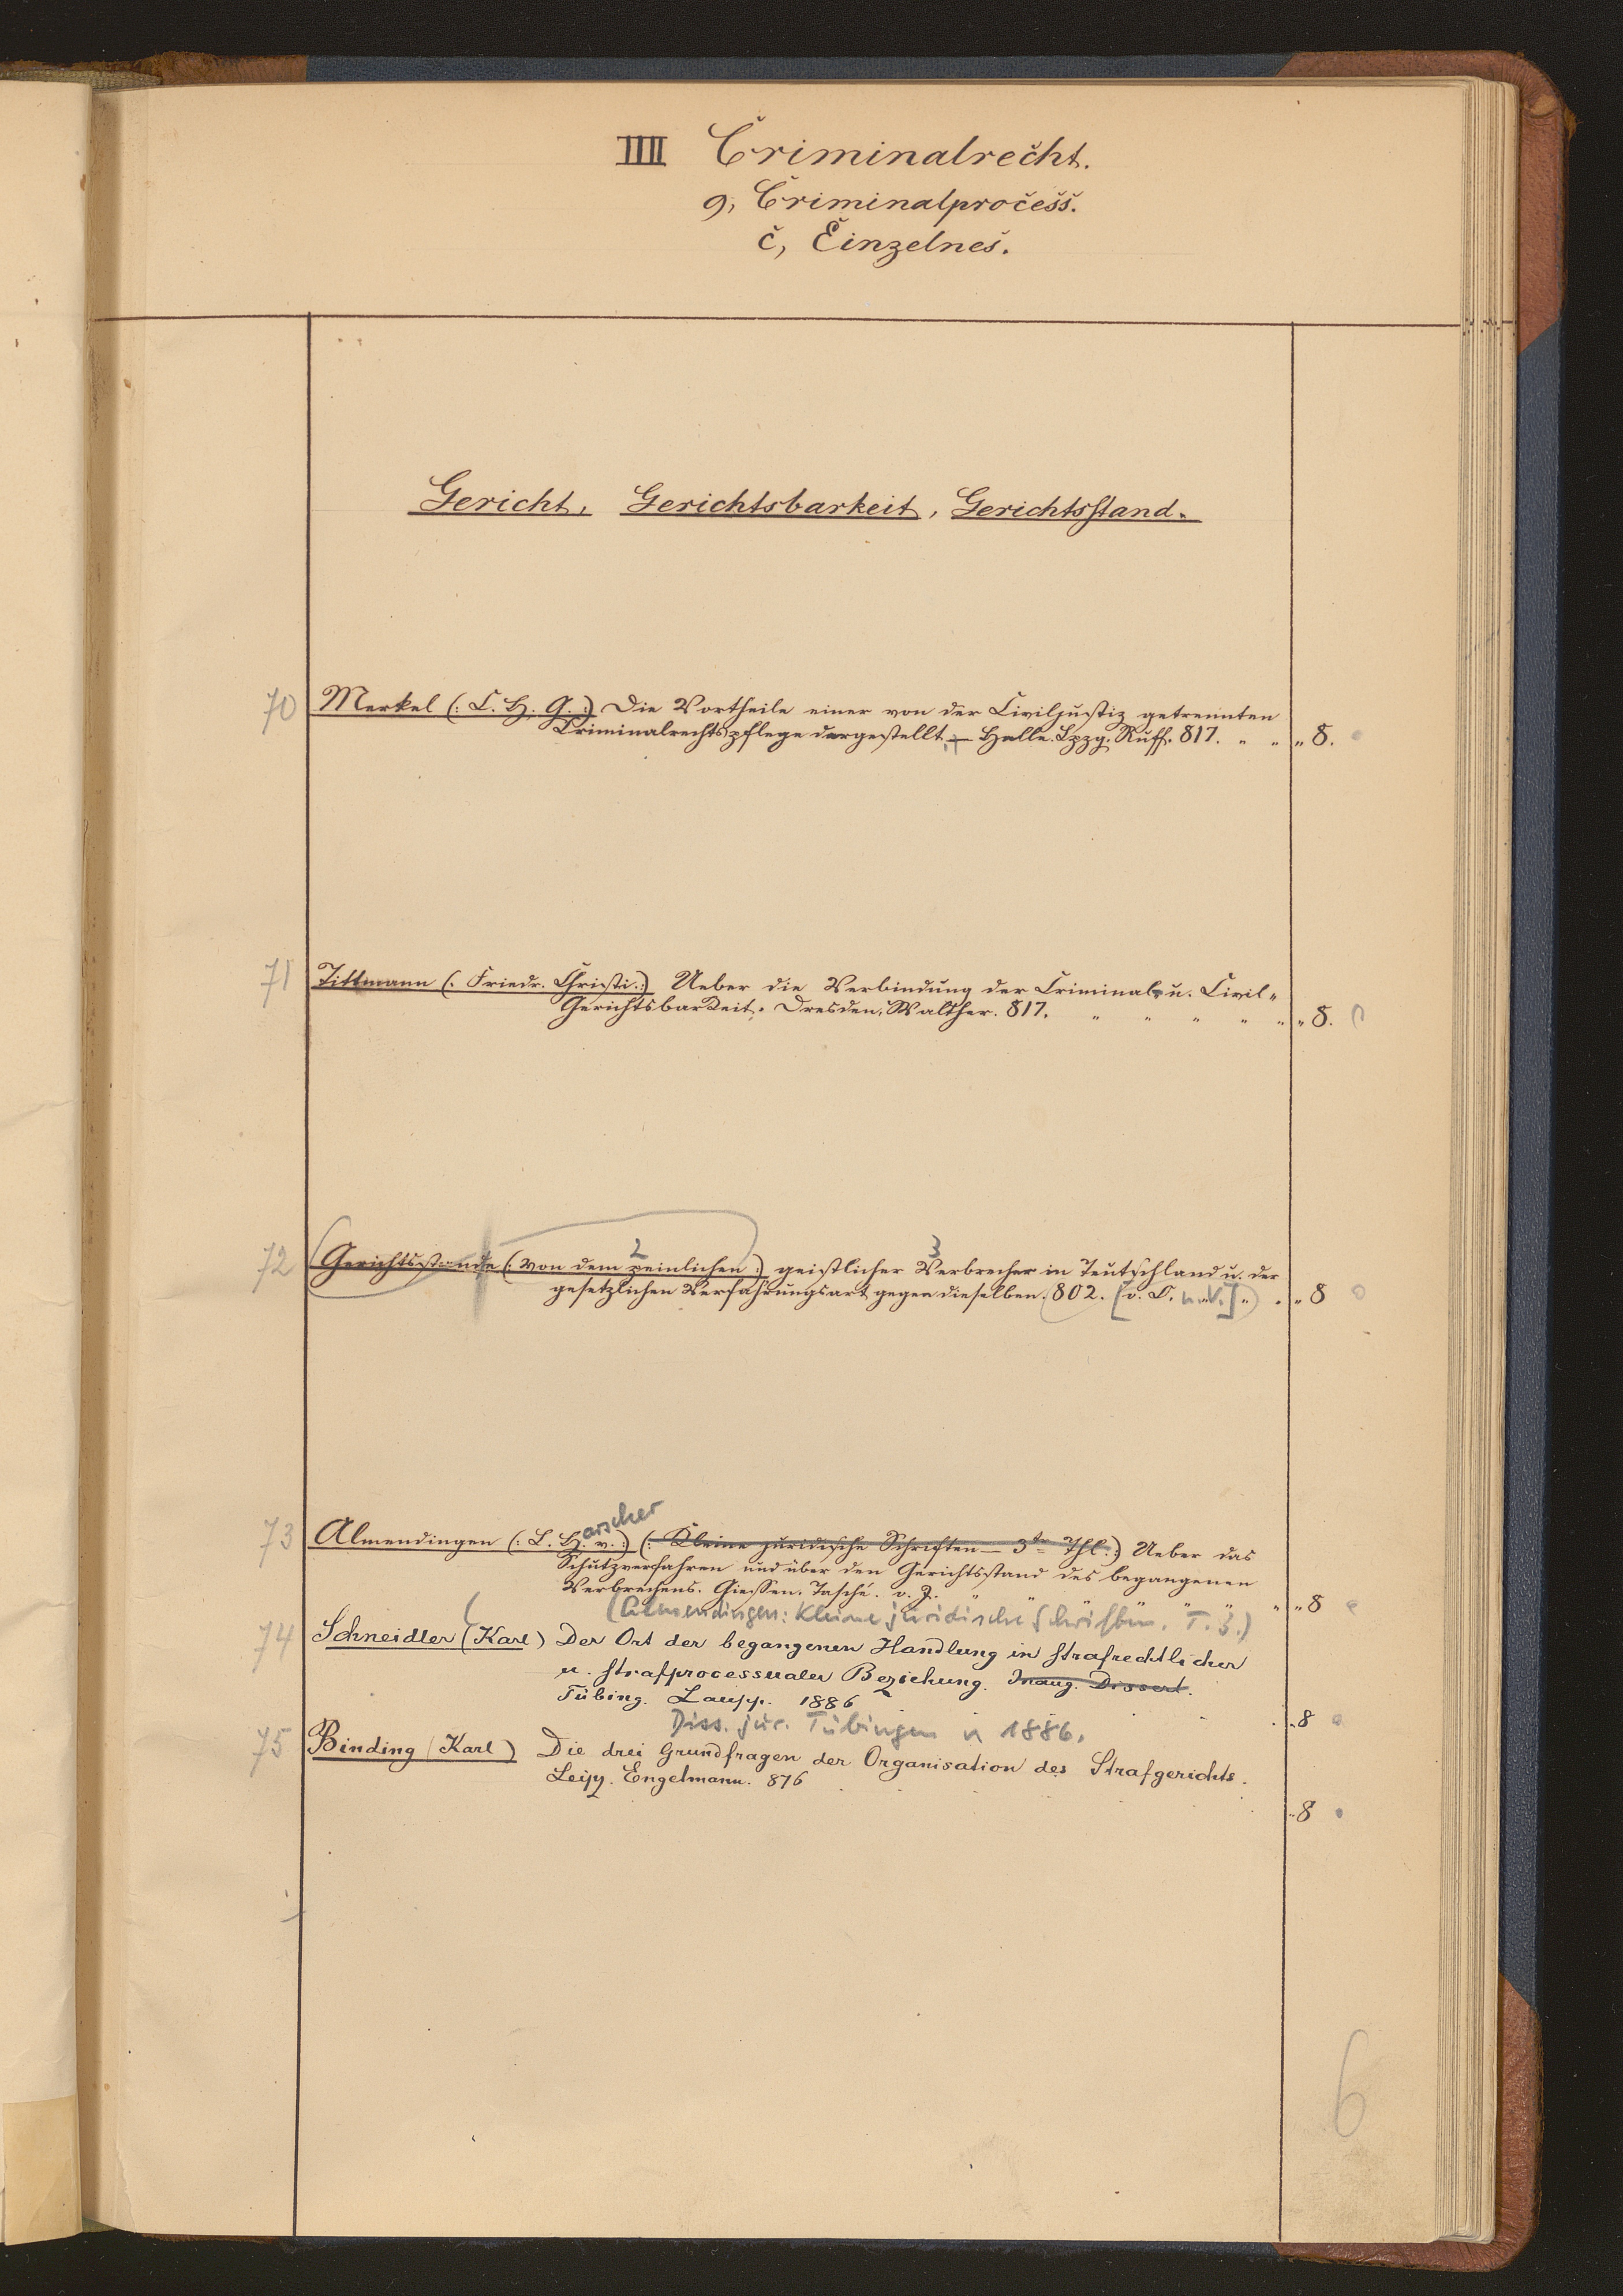 IIII Criminalrecht.
9, Criminalprocess.
c, Einzelnes.
Gericht, Gerichtsbarkeit, Gerichtsstand.
70 Merkel (: C. H. G. :) Die Vortheile einer von der Civiljustiz getrennten
Criminalrechtspflege dargestellt, — Halle. Lpzg. Ruff. 817. " " " 8.
71 Tittmann (: Friedr. Christi. :) Ueber die Verbindung der Criminal- u. Civil-
Gerichtsbarkeit. Dresden, Walther. 817. " " " " " " 8.
2 3
72 Gerichtsstande (: von dem peinlichen :) geistlicher Verbrecher in Teutschland u. der
gesetzlichen Verfahrungsart gegen dieselben. (802. [v. O. u. V.] ") " " 8
arscher
73 Almendingen (: L. H. v. :) (: Kleine juridische Schriften — 3tr Thl. :) Ueber das
Schutzverfahren und über den Gerichtsstand des begangenen
Verbrechens. Giessen. Tasché. v. J. " " " " " " " 8
(Almendingen: Kleine juridische Schriften. T. 3.)
74 Schneidler (Karl) Der Ort der begangenen Handlung in strafrechtlicher
u. strafprocessualer Beziehung. Inaug. Dissert.
Tübing. Laupp. 1886 . . . " 8
Diss. jur. Tübingen v 1886.
75 Binding (Karl) Die drei Grundfragen der Organisation des Strafgerichts.
Leipz. Engelmann. 876 . . . . " 8
6